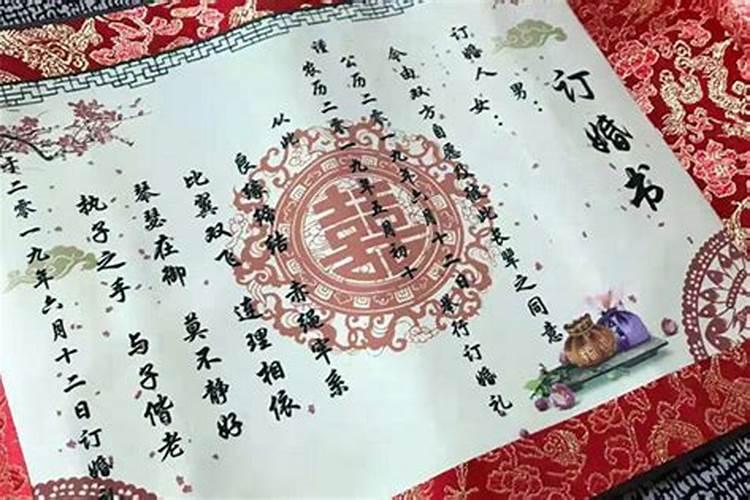 订婚书
订婚人 男：
女：
今由双方自愿及征此长辈之同意
公历二零一九年六月十二日举行订婚礼
谨 农历二零一九年五月初十
从此 良缘缔结 赤绳牢系
比翼双飞 连理相依
琴瑟在御 莫不静好
执子之手 与子偕老
于二零一九年六月十二日订婚